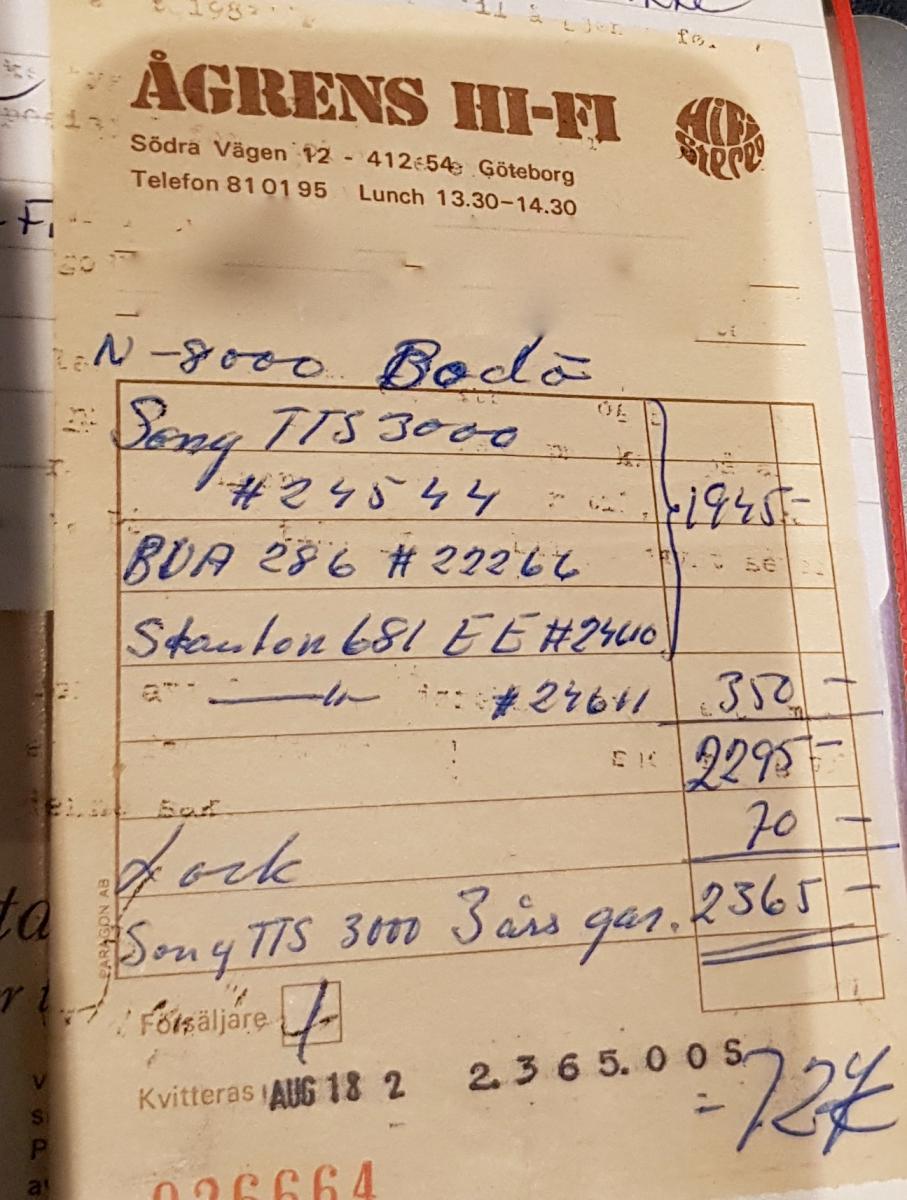 ÅGRENS HI-FI
HiFi Stereo
Södra Vägen 12 - 412 54 Göteborg
Telefon 81 01 95 Lunch 13.30-14.30
N-8000 Bodö
Sony TTS 3000
#24544 1945-
BVA 286 #22266
Stanton 681 EE #2440
#24611 350 -
2295 -
70 -
Lock
Sony TTS 3000 3 års gar. 2365 -
PARAGON AB
Försäljare
Kvitteras AUG 18 2 2.365.00S
026664